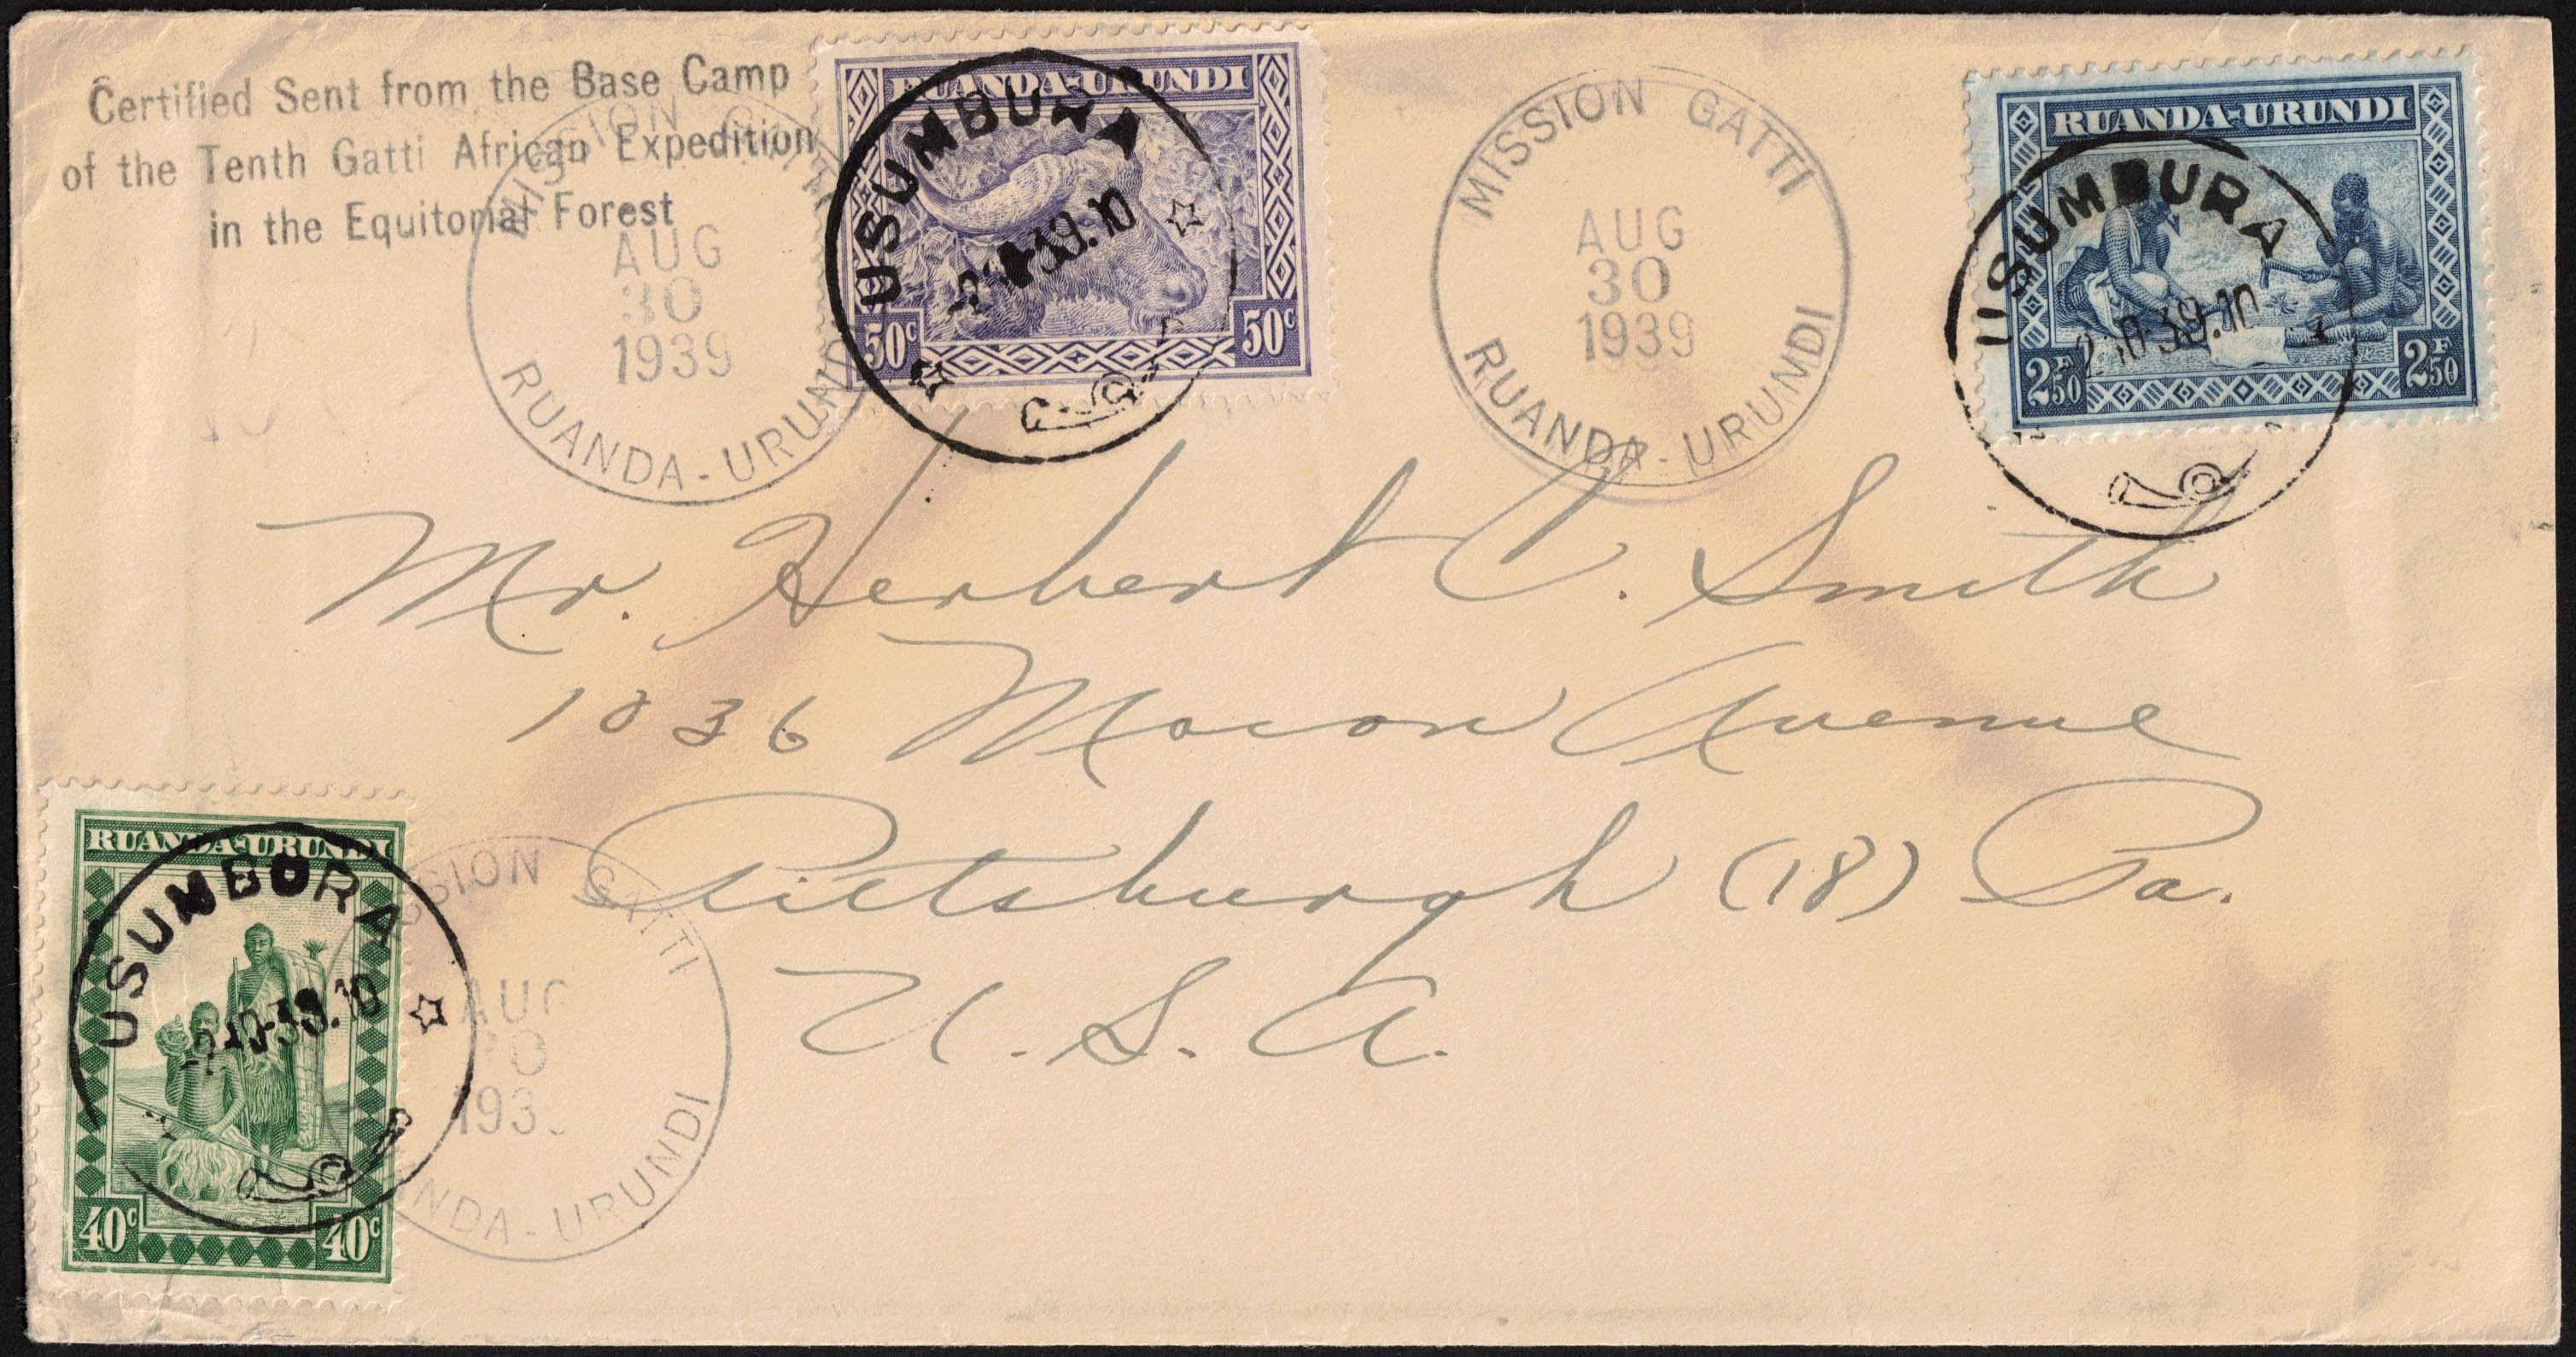 Certified Sent from the Base Camp
of the Tenth Gatti African Expedition
in the Equitorial Forest
MISSION GATTI
AUG
30
1939
RUANDA-URUNDI
RUANDA-URUNDI
50c 50c
USUMBURA
-2-10-39.10
MISSION GATTI
AUG
30
1939
RUANDA-URUNDI
RUANDA-URUNDI
2F50 2F50
USUMBURA
-2-10-39.10
Mr. Herbert C. Smith
1036 Macon Avenue
Pittsburgh (18) Pa.
U.S.A.
RUANDA-URUNDI
40c 40c
USUMBURA
-2-10-39.10
SSION GATTI
AUG
30
193
ANDA-URUNDI